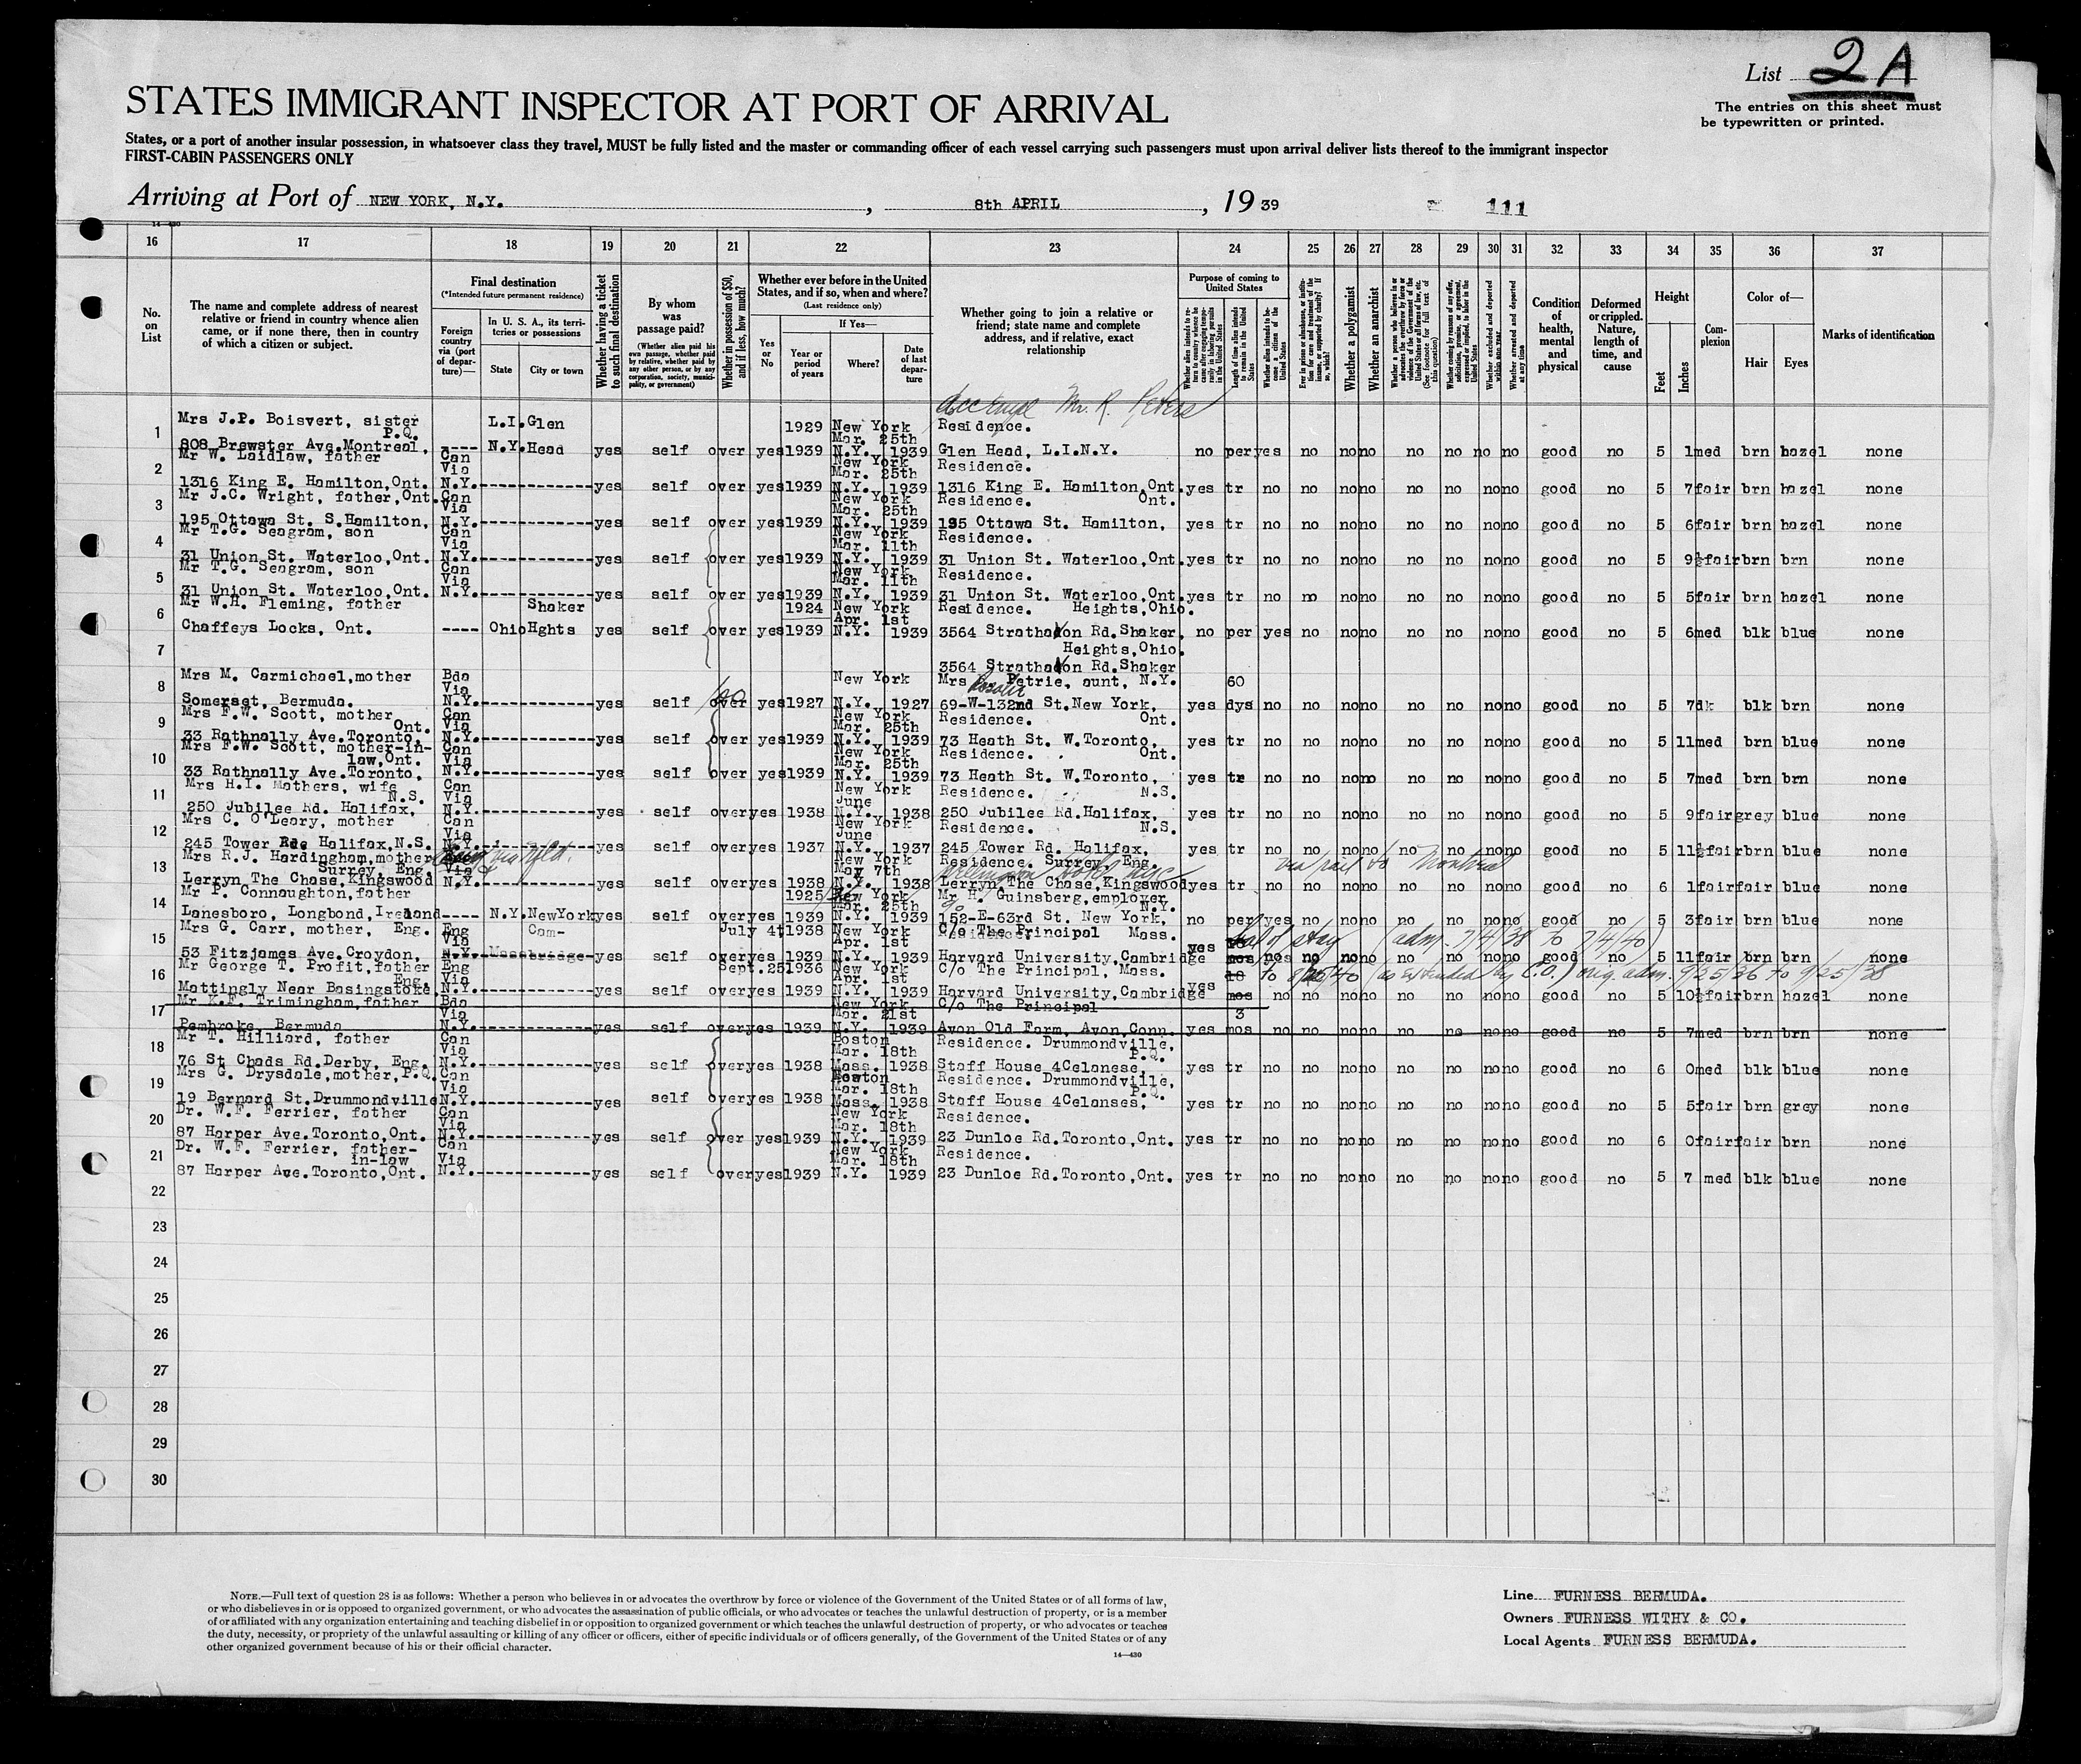 List 2A
STATES IMMIGRANT INSPECTOR AT PORT OF ARRIVAL
The entries on this sheet must
be typewritten or printed.
States, or a port of another insular possession, in whatsoever class they travel, MUST be fully listed and the master or commanding officer of each vessel carrying such passengers must upon arrival deliver lists thereof to the immigrant inspector
FIRST-CABIN PASSENGERS ONLY
Arriving at Port of NEW YORK, N.Y. , 8th APRIL , 19 39 111
16 17 18 19 20 21 22 23 24 25 26 27 28 29 30 31 32 33 34 35 36 37
No. on List
The name and complete address of nearest relative or friend in country whence alien came, or if none there, then in country of which a citizen or subject.
Final destination
(*Intended future permanent residence)
Foreign country via (port of departure)—
In U. S. A., its territories or possessions
State City or town
Whether having a ticket to such final destination
By whom was passage paid?
(Whether alien paid his own passage, whether paid by relative, whether paid by any other person, or by any corporation, society, municipality, or government)
Whether in possession of $50, and if less, how much?
Whether ever before in the United States, and if so, when and where?
(Last residence only)
Yes or No
If Yes—
Year or period of years Where? Date of last departure
Whether going to join a relative or friend; state name and complete address, and if relative, exact relationship
Purpose of coming to United States
Whether alien intends to return to country whence he came after engaging temporarily in laboring pursuits in the United States
Length of time alien intends to remain in the United States
Whether alien intends to become a citizen of the United States
Whether a polygamist
Whether an anarchist
Whether excluded and deported within one year
Whether arrested and deported at any time
Condition of health, mental and physical
Deformed or crippled. Nature, length of time, and cause
Height
Feet Inches
Complexion
Color of—
Hair Eyes
Marks of identification
Mr. R. Peters
1 Mrs J.P. Boisvert, sister L.I. Glen 1929 New York Residence.
P.Q. Mar. 25th
808 Brewster Ave.Montreal, ---- N.Y. Head yes self over yes 1939 N.Y. 1939 Glen Head, L.I.N.Y. no per yes no no no no no no no good no 5 1 med brn hazel none
2 Mr W. Laidlaw, father Can Via New York Mar. 25th Residence.
1316 King E. Hamilton,Ont. N.Y. yes self over yes 1939 N.Y. 1939 1316 King E. Hamilton,Ont. yes tr no no no no no no no no good no 5 7 fair brn hazel none
3 Mr J.C. Wright, father,Ont. Can Via New York Mar. 25th Residence. Ont.
195 Ottawa St. S.Hamilton, N.Y. yes self over yes 1939 N.Y. 1939 195 Ottawa St. Hamilton, yes tr no no no no no no no no good no 5 6 fair brn hazel none
4 Mr T.G. Seagram, son Can Via New York Mar. 11th Residence.
31 Union St. Waterloo,Ont. N.Y. yes self over yes 1939 N.Y. 1939 31 Union St. Waterloo,Ont. yes tr no no no no no no no no good no 5 9½ fair brn brn none
5 Mr T.G. Seagram, son Can Via New York Mar. 11th Residence.
31 Union St. Waterloo,Ont. N.Y. yes self over yes 1939 N.Y. 1939 31 Union St. Waterloo,Ont. yes tr no no no no no no no no good no 5 5 fair brn hazel none
6 Mr W.H. Fleming, father Shaker 1924 New York Apr. 1st Residence. Heights,Ohio.
Chaffeys Locks, Ont. ---- Ohio Hghts yes self over yes 1939 N.Y. 1939 3564 Strathavon Rd.Shaker, no per yes no no no no no no no good no 5 6 med blk blue none
7 Heights,Ohio.
3564 Strathavon Rd.Shaker
8 Mrs M. Carmichael,mother Bda Via New York Mrs Petrie, aunt, N.Y. 60
Somerset, Bermuda. N.Y. yes self over yes 1927 N.Y. 1927 69-W-132nd St.New York, yes dys no no no no no no no no good no 5 7 dk blk brn none
9 Mrs F.W. Scott, mother Ont. Can Via New York Mar. 25th Residence. Ont.
33 Rathnally Ave.Toronto, N.Y. yes self over yes 1939 N.Y. 1939 73 Heath St. W.Toronto, yes tr no no no no no no no no good no 5 11 med brn blue none
10 Mrs F.W. Scott, mother-in-law,Ont. Can Via New York Mar. 25th Residence. Ont.
33 Rathnally Ave.Toronto, N.Y. yes self over yes 1939 N.Y. 1939 73 Heath St. W.Toronto, yes tr no no no no no no no no good no 5 7 med brn brn none
11 Mrs H.I. Mathers, wife N.S. Can Via New York June Residence. N.S.
250 Jubilee Rd. Halifax, N.Y. yes self over yes 1938 N.Y. 1938 250 Jubilee Rd.Halifax, yes tr no no no no no no no no good no 5 9 fair grey blue none
12 Mrs C. O'Leary, mother Can Via New York June Residence. N.S.
245 Tower Rd. Halifax,N.S. N.Y. yes self over yes 1937 N.Y. 1937 245 Tower Rd. Halifax, yes tr no no no no no no no no good no 5 11½ fair brn blue none
13 Mrs R.J. Hardingham,mother Surrey, Eng. via Nfld. Via New York May 7th Residence. Surrey, Eng. via rail to Montreal
Hotel NYC
Lerryn The Chase,Kingswood N.Y. yes self over yes 1938 N.Y. 1938 Lerryn,The Chase,Kingswood yes tr no no no no no no no no good no 6 1 fair fair blue none
14 Mr P. Connaughton,father 1925 New York Mar. 25th Mr H. Guinsberg,employer N.Y.
Lanesboro, Longbond,Ireland ---- N.Y. NewYork yes self over yes 1939 N.Y. 1939 152-E-63rd St. New York, no per yes no no no no no no no good no 5 3 fair brn blue none
15 Mrs G. Carr, mother, Eng. Eng Via Cam- July 4t 1938 New York Apr. 1st C/o The Principal Mass. Bal of stay (adm. 7/4/38 to 7/4/40)
53 Fitzjames Ave.Croydon, N.Y. Mass bridge yes self over yes 1939 N.Y. 1939 Harvard University,Cambridge yes mos no no no no no no no no good no 5 11 fair brn brn none
16 Mr George T. Profit,father Eng. Eng Via Sept.25 1936 New York Apr. 1st C/o The Principal, Mass. 18 to 9/25/40 (as extended by C.O.) orig. adm. 9/25/36 to 9/25/38
Mattingly Near Basingstoke, N.Y. yes self over yes 1939 N.Y. 1939 Harvard University,Cambridge yes mos no no no no no no no no good no 5 10½ fair brn hazel none
17 Mr K.F. Trimingham,father Bda Via New York Mar. 21st C/o The Principal 3
Pembroke, Bermuda N.Y. yes self over yes 1939 N.Y. 1939 Avon Old Farm, Avon,Conn. yes mos no no no no no no no no good no 5 7 med brn brn none
18 Mr T. Hilliard, father Can Via Boston Mar. 18th Residence. Drummondville, P.Q.
76 St Chads Rd.Derby, Eng. N.Y. yes self over yes 1938 Mass. 1938 Staff House 4Celanese, yes tr no no no no no no no no good no 6 0 med blk blue none
19 Mrs G. Drysdale,mother,P.Q. Can Via Boston Mar. 18th Residence. Drummondville, P.Q.
19 Bernard St.Drummondville N.Y. yes self over yes 1938 Mass. 1938 Staff House 4Celanses, yes tr no no no no no no no no good no 5 5 fair brn grey none
20 Dr. W.F. Ferrier, father Can Via New York Mar. 18th Residence.
87 Harper Ave.Toronto,Ont. N.Y. yes self over yes 1939 N.Y. 1939 23 Dunloe Rd.Toronto,Ont. yes tr no no no no no no no no good no 6 0 fair fair brn none
21 Dr. W.F. Ferrier, father-in-law Can Via New York Mar. 18th Residence.
87 Harper Ave.Toronto,Ont. N.Y. yes self over yes 1939 N.Y. 1939 23 Dunloe Rd.Toronto,Ont. yes tr no no no no no no no no good no 5 7 med blk blue none
22
23
24
25
26
27
28
29
30
NOTE.—Full text of question 28 is as follows: Whether a person who believes in or advocates the overthrow by force or violence of the Government of the United States or of all forms of law,
or who disbelieves in or is opposed to organized government, or who advocates the assassination of public officials, or who advocates or teaches the unlawful destruction of property, or is a member
of or affiliated with any organization entertaining and teaching disbelief in or opposition to organized government or which teaches the unlawful destruction of property, or who advocates or teaches
the duty, necessity, or propriety of the unlawful assaulting or killing of any officer or officers, either of specific individuals or of officers generally, of the Government of the United States or of any
other organized government because of his or their official character.
14—430
Line FURNESS BERMUDA.
Owners FURNESS WITHY & CO.
Local Agents FURNESS BERMUDA.